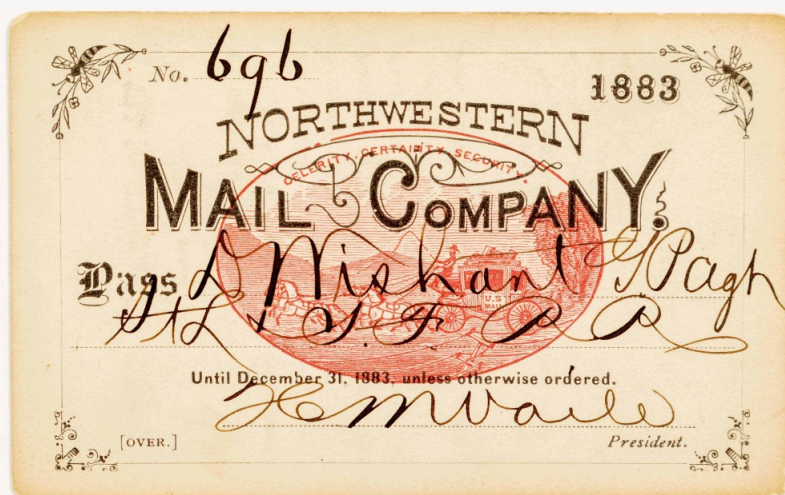 No. 696
1883
NORTHWESTERN
CELERITY. CERTAINTY. SECURITY.
MAIL COMPANY.
Pass D Wishart G P Agt
St L & S. F. R R
U.S. MAIL
Until December 31, 1883, unless otherwise ordered.
H M Vaile
[OVER.] President.